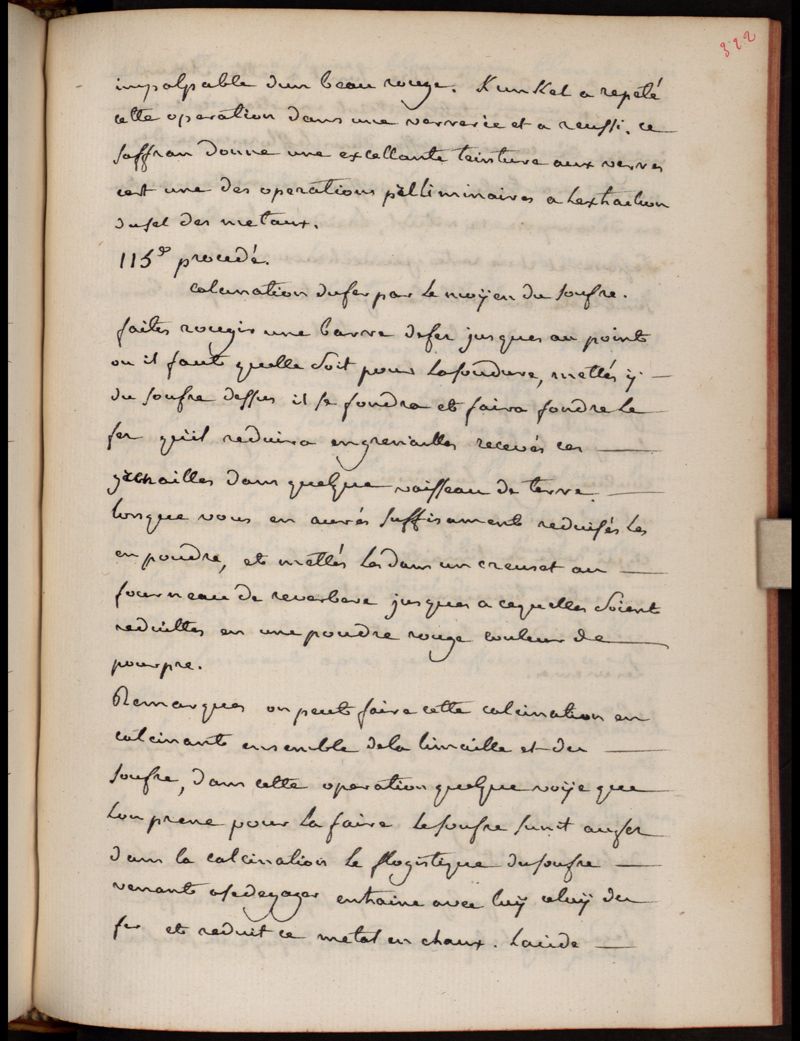 322
impalpable dun beau rouge. Kunkel a repeté
cette operation dans une verrerie et a reussi. ce
saffran donne une excellante teinture aux verres
cest une des operations preliminaires a lextraction
du sel des metaux.
115e procedé.
calcination du fer par le moÿen du soufre.
faites rougir une barre de fer jusques au point
ou il faut quelle soit pour la soudure, mettés ÿ
du soufre dessus il se fondra et faira fondre le
fer quil reduira en grenailles recevés ces
grenailles dans quelque vaisseau de terre
lorsque vous en aurés suffisament reduisés les
en poudre, et mettés les dans un creuset au
fourneau de reverbere jusques a cequelles soient
reduittes en une poudre rouge couleur de
pourpre.
Remarques on peut faire cette calcination en
calcinant ensemble de la limaille et du
soufre, dans cette operation quelque voÿe que
lon prene pour la faire le soufre sunit au fer
dans la calcination le flogistique du soufre
venant a se degager entraine avec luÿ celuÿ du
fer et reduit ce metal en chaux. lacide